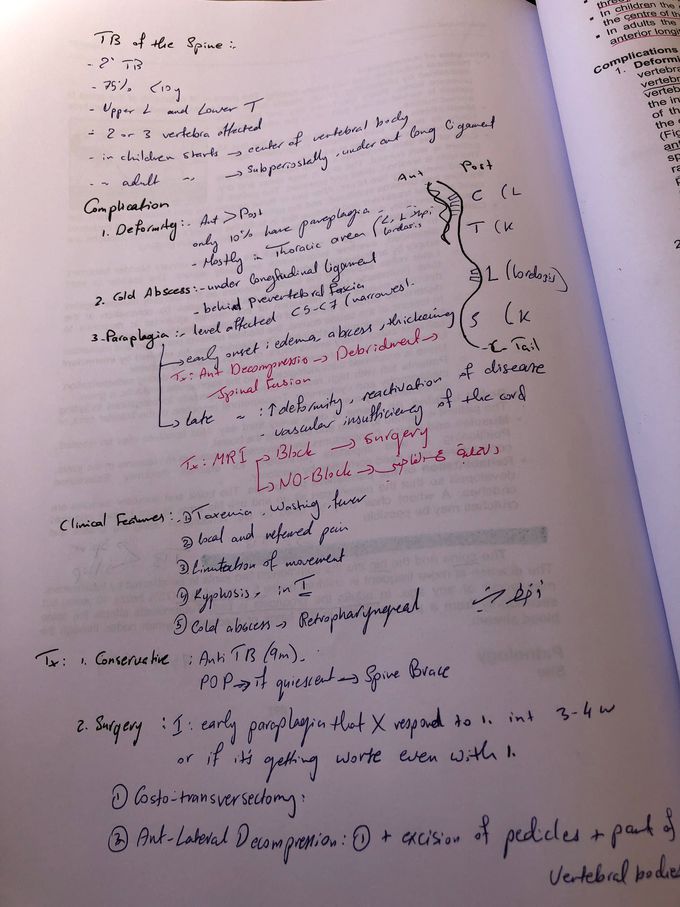 TB of the Spine:-
- 2° TB
- 75% <10y
- Upper L and Lower T
- 2 or 3 vertebra affected
- in children starts → center of vertebral body
- ~ adult ~ → subperiostally, under ant long ligament
Complication
1. Deformity:- Ant > Post
only 10% have paraplagia -
- Mostly in Thoracic area
2. Cold Abscess:- under longtudinal ligament
- behind Prevertebral Fascia
3. Paraplagia:- level affected C5-C7 (narrowest.
→ early onset: edema, abscess, thickening
Tx: Ant Decompressio → Debridment →
Spinal Fusion
→ late ~ : ↑ deformity, reactivation of disease
- vascular insufficiency of the cord
Tx: MRI → Block → Surgery
→ NO-Block →
Ant Post
C (L
T (K
L (lordosis)
S (K
Tail
Clinical Features: ① Toxemia, Wasting, fever
② local and referred pain
③ Limitation of movement
④ Kyphosis, in T
⑤ Cold abscess → Retropharyngeal
Tx: 1. Conservative : Anti TB (9m).
POP → if quiescent → Spine Brace
2. Surgery : I: early paraplagia that X respond to 1. int 3-4 w
or if it's getting worse even with 1.
① Costo-transversectomy:
② Ant-Lateral Decompression: ① + excision of pedicles + part of
Vertebral bodies
• In children the
the centre of th
• In adults the
anterior longit
Complications
1. Deformi
vertebra